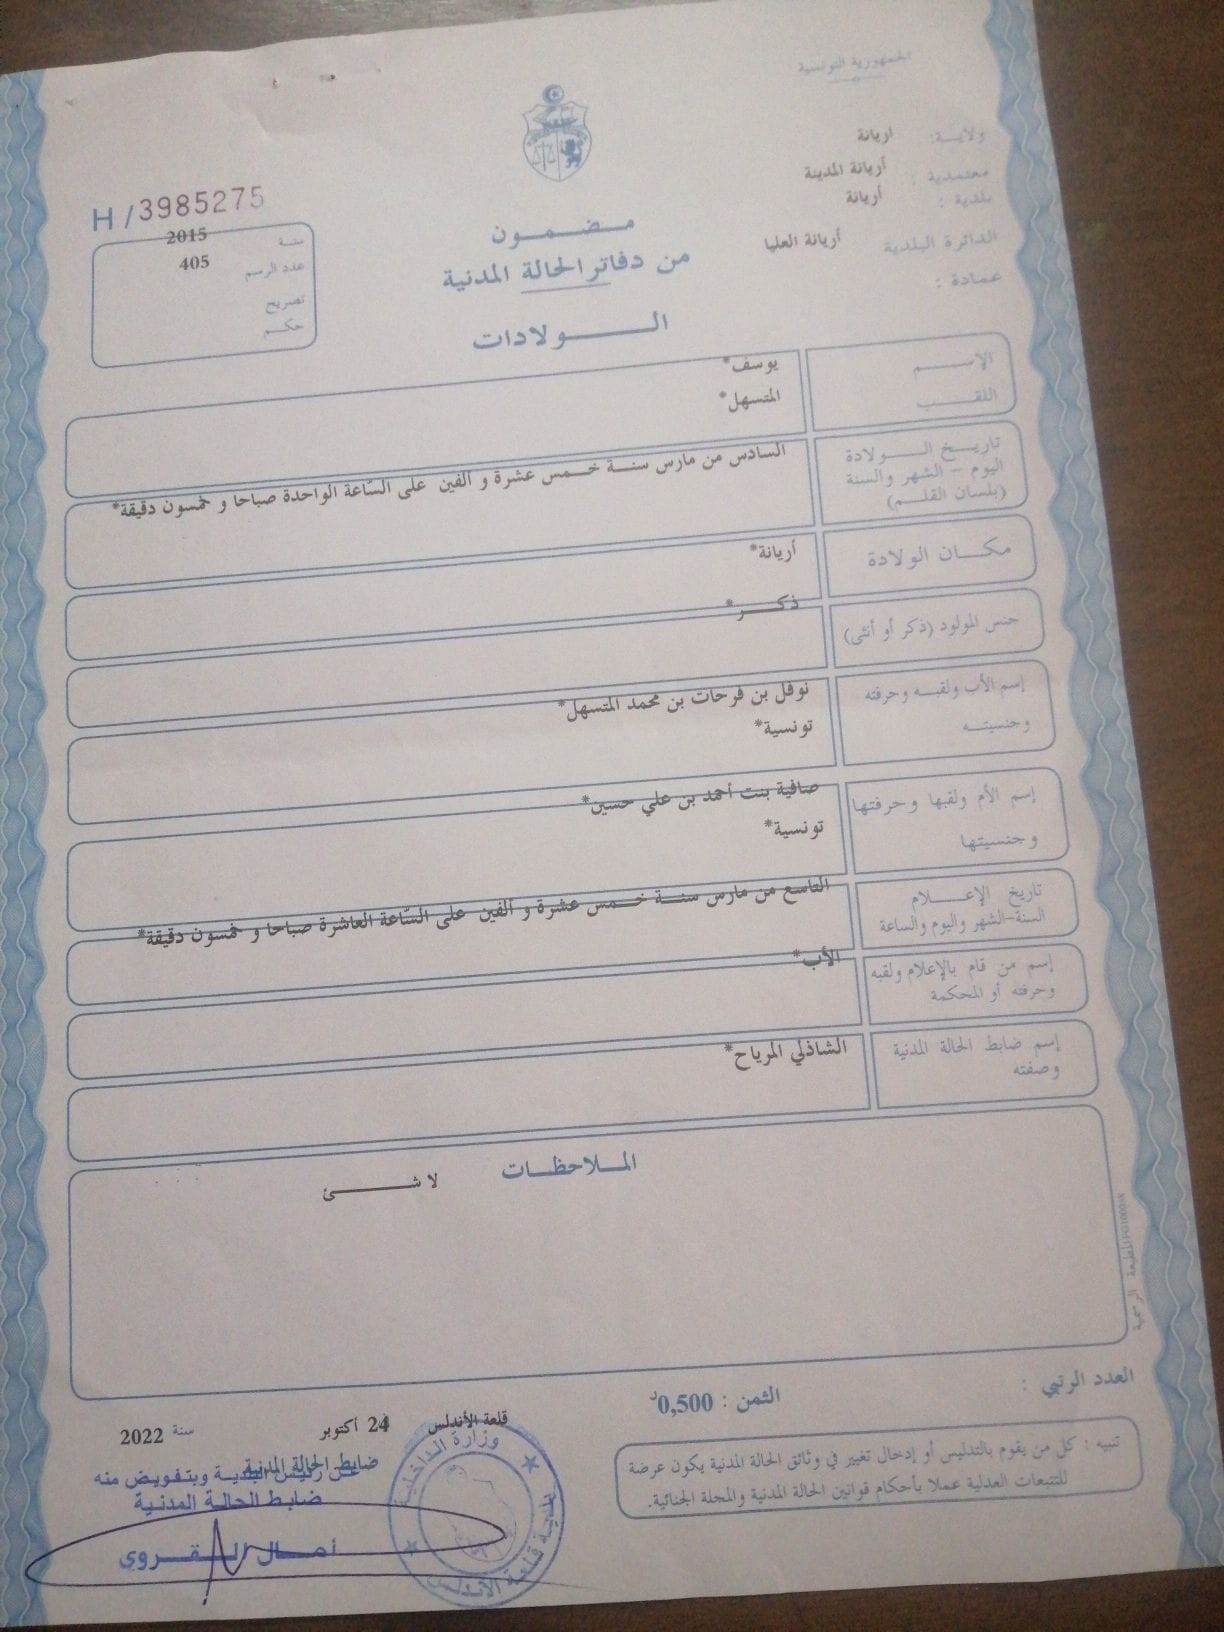 الجمهورية التونسية
ولايـــة: اريانة
معتمدية : أريانة المدينة
بلدية : أريانة
الدائرة البلدية أريانة العليا
عمادة :
H/3985275
سنة 2015
عدد الرسم 405
تصريح
حكم
مضمون
من دفاتر الحالة المدنية
الولادات
الإسم يوسف*
اللقب المتسهل*
تاريخ الولادة
اليوم - الشهر والسنة
(بلسان القلم)
السادس من مارس سنة خمس عشرة و ألفين على السّاعة الواحدة صباحا و خمسون دقيقة*
مكان الولادة أريانة*
جنس المولود (ذكر أو أنثى) ذكر*
إسم الأب ولقبه وحرفته نوفل بن فرحات بن محمد المتسهل*
وجنسيته تونسية*
إسم الأم ولقبها وحرفتها صافية بنت أحمد بن علي حسين*
وجنسيتها تونسية*
تاريخ الإعلام
السنة-الشهر واليوم والساعة
التاسع من مارس سنة خمس عشرة و ألفين على السّاعة العاشرة صباحا و خمسون دقيقة*
إسم من قام بالإعلام ولقبه الأب*
وحرفته أو المحكمة
إسم ضابط الحالة المدنية الشاذلي المرياح*
وصفته
الملاحظات
لا شئ
المطبعة الرسمية
العدد الرتبي :
الثمن : 0,500د
تنبيه : كل من يقوم بالتدليس أو إدخال تغيير في وثائق الحالة المدنية يكون عرضة
للتتبعات العدلية عملا بأحكام قوانين الحالة المدنية والمجلة الجنائية.
قلعة الأندلس 24 أكتوبر سنة 2022
ضابط الحالة المدنية
عن رئيس البلدية وبتفويض منه
ضابط الحالة المدنية
أمال القروي
وزارة الداخلية
بلدية قلعة الأندلس